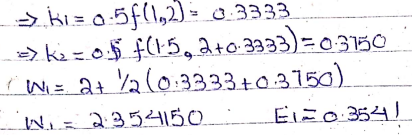 ⇒ K1 = 0.5f(1,2) = 0.3333
⇒ K2 = 0.5 f(1.5, 2+0.3333) = 0.3750
W1 = 2 + 1/2 (0.3333 + 0.3750)
W1 = 2.354150 E1 = 0.3541